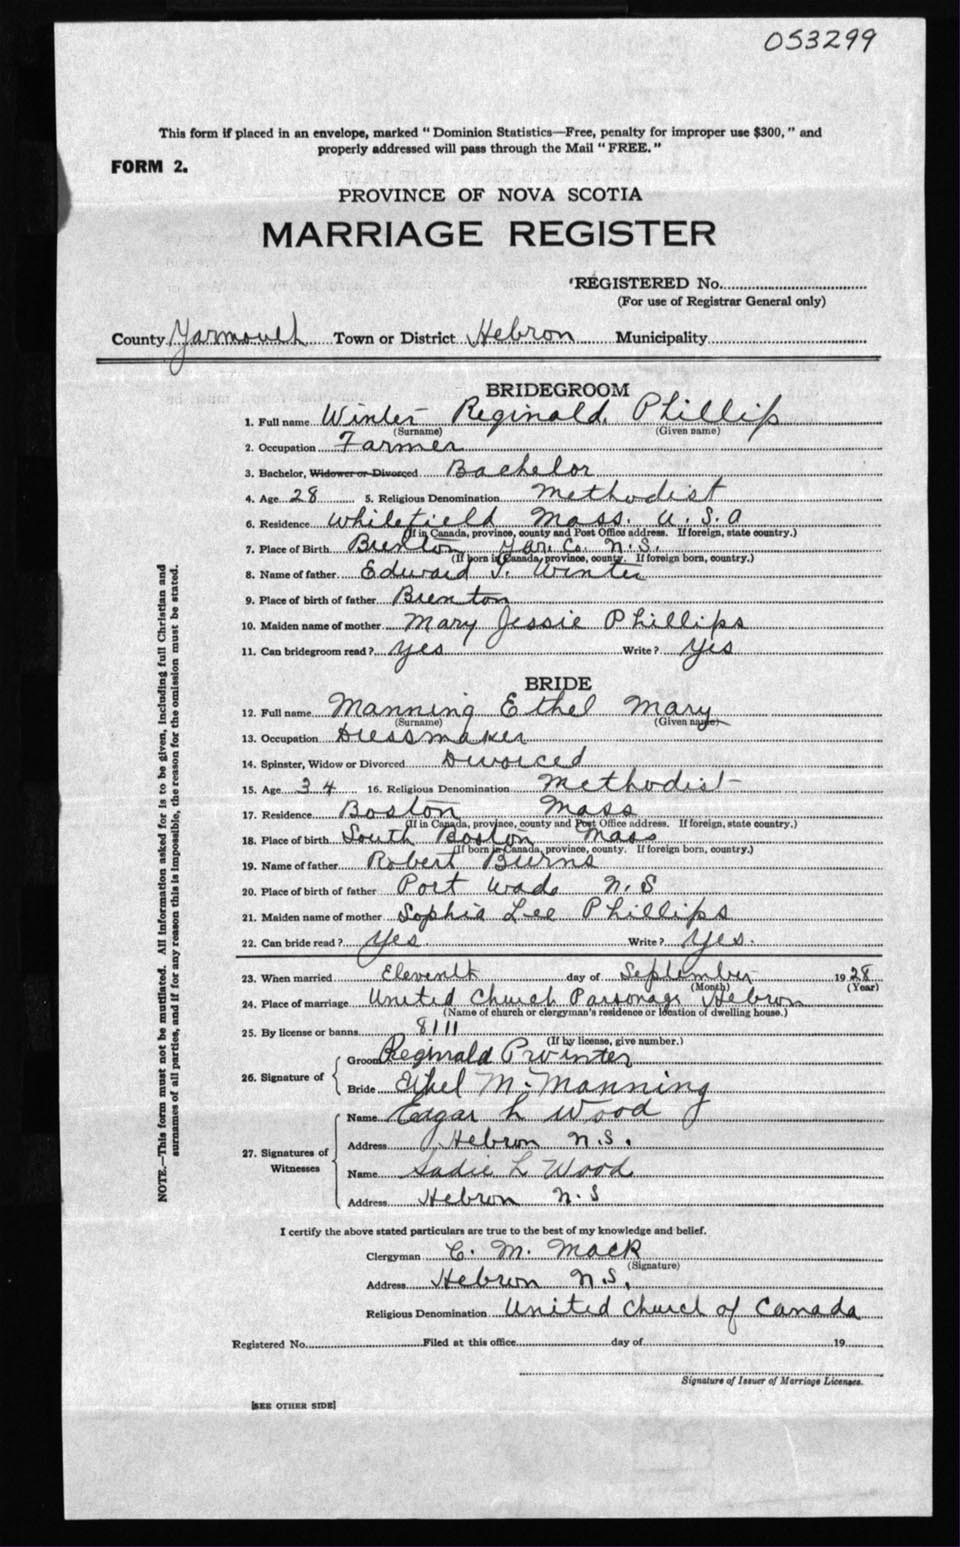 053299
This form if placed in an envelope, marked " Dominion Statistics—Free, penalty for improper use $300, " and
properly addressed will pass through the Mail " FREE. "
FORM 2.
PROVINCE OF NOVA SCOTIA
MARRIAGE REGISTER
REGISTERED No.
(For use of Registrar General only)
County Yarmouth Town or District Hebron Municipality
BRIDEGROOM
1. Full name Winter Reginald Phillip
(Surname) (Given name)
2. Occupation Farmer
3. Bachelor, Widower or Divorced Bachelor
4. Age 28 5. Religious Denomination Methodist
6. Residence Whitefield Mass. U.S.A
(If in Canada, province, county and Post Office address. If foreign, state country.)
7. Place of Birth Brenton Yar. Co. N.S.
(If born in Canada, province, county. If foreign born, country.)
8. Name of father Edward Winter
9. Place of birth of father Brenton
10. Maiden name of mother Mary Jessie Phillips
11. Can bridegroom read? Yes Write? Yes
BRIDE
12. Full name Manning Ethel Mary
(Surname) (Given name)
13. Occupation Dressmaker
14. Spinster, Widow or Divorced Divorced
15. Age 34 16. Religious Denomination Methodist
17. Residence Boston Mass
(If in Canada, province, county and Post Office address. If foreign, state country.)
18. Place of birth South Boston Mass
(If born in Canada, province, county. If foreign born, country.)
19. Name of father Robert Burns
20. Place of birth of father Port Wade N.S
21. Maiden name of mother Sophia Lee Phillips
22. Can bride read? Yes Write? Yes.
23. When married Eleventh day of September 1928
(Month) (Year)
24. Place of marriage United Church Parsonage Hebron
(Name of church or clergyman's residence or location of dwelling house.)
25. By license or banns 8111
(If by license, give number.)
26. Signature of Groom Reginald P Winter
Bride Ethel M. Manning
27. Signatures of Witnesses Name Edgar L Wood
Address Hebron N.S.
Name Sadie L Wood
Address Hebron N.S
I certify the above stated particulars are true to the best of my knowledge and belief.
Clergyman C. M. Mack
(Signature)
Address Hebron N.S.
Religious Denomination United Church of Canada
Registered No. Filed at this office day of 19
Signature of Issuer of Marriage Licenses.
[SEE OTHER SIDE]
NOTE.—This form must not be mutilated. All information asked for is to be given, including full Christian and
surnames of all parties, and if for any reason this is impossible, the reason for the omission must be stated.